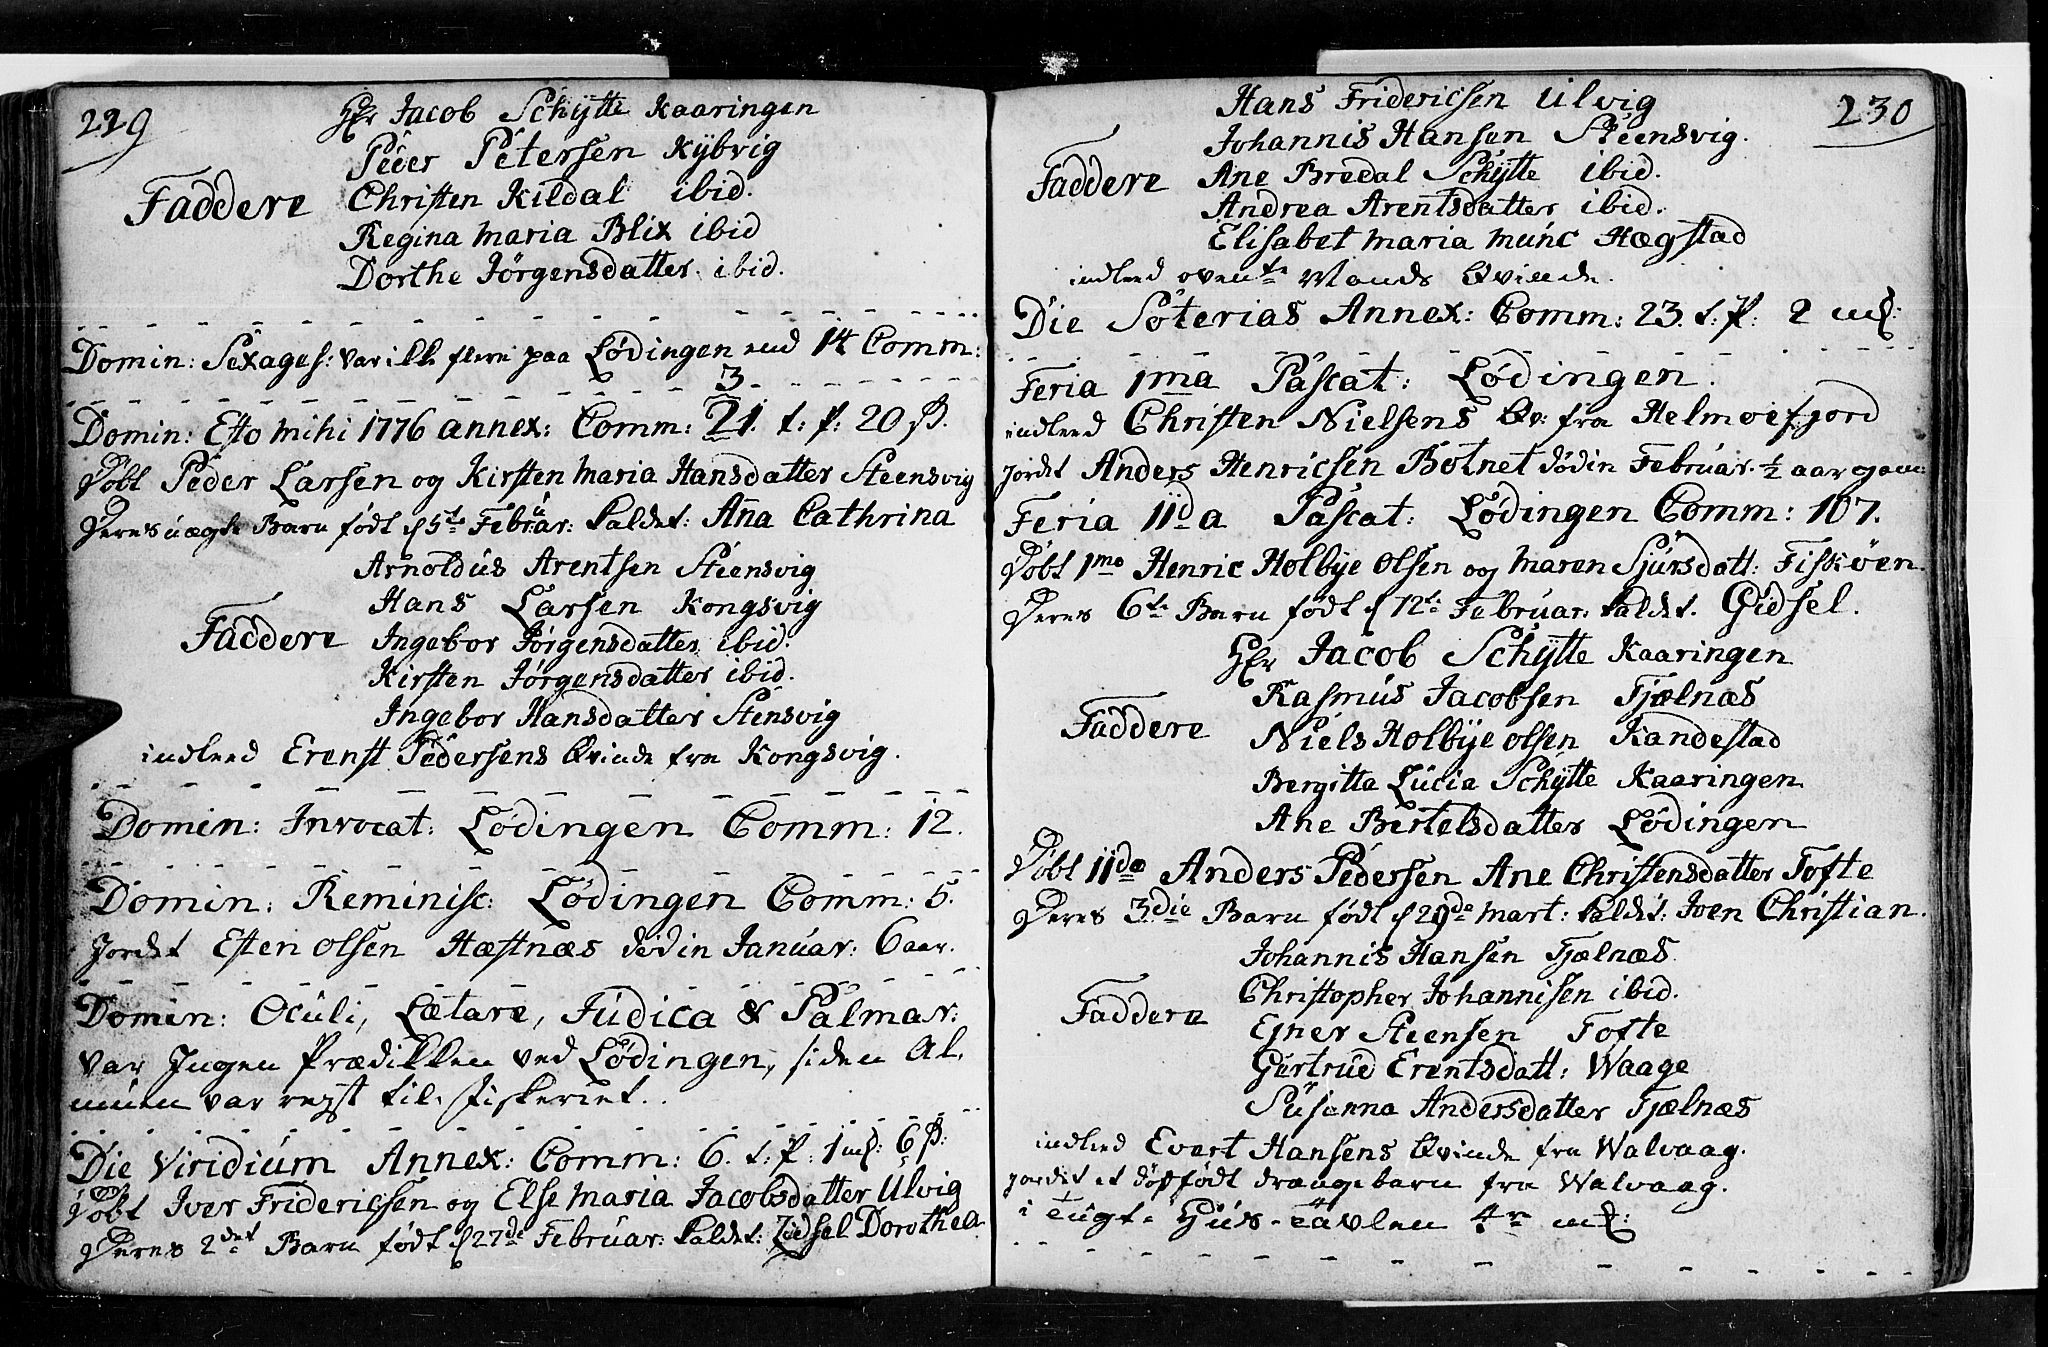 229
Hr Jacob Schÿtte Kaaringen
Peder Petersen Kÿbvig
Faddere Christen Kildal ibid.
Regina Maria Blix ibid
Dorthe Jørgensdatter ibid.
Domin: Sexages: var ikke flere paa Lødingen end 14 Comm:
3
Domin: Esto mihi 1776 annex: Comm: 21. t: p: 20 β.
Døbt Peder Larsen og Kirsten Maria Hansdatter Steensvig
Deres uægte Barn født d 5te Febrúar: kaldet: Ana Cathrina
Arnoldús Arentsen Steensvig
Hans Larsen Kongsvig
Faddere Ingebor Jørgensdatter ibid.
Kirsten Jørgensdatter ibid.
Ingebor Hansdatter Stensvig
indleed Erenst Pedersens Qvinde fra Kongsvig.
Domin: Invocat: Lødingen Comm: 12.
Domin: Reminisc: Lødingen Comm: 5.
Jordet Esten Olsen Hæstnæs død in Januar: 6 aar.
Domin: Oculi, Lætare, Júdica & Palmar:
var Ingen Prædikken ved Lødingen, siden Al-
muen var reyst til Fiskeriet.
Die Viridium Annex: Comm: 6. t: p: 1 mk: 6 β:
Døbt Iver Fridericsen og Else Maria Jacobsdatter Ulvig
Deres 2det Barn født d 27de Febrúar: kaldet: Zidsel Dorothea
230
Hans Fridericsen Ulvig
Johannis Hansen Steensvig.
Faddere Ane Bredal Schÿtte ibid.
Andrea Arentsdatter ibid.
Elisabet Maria Munc Hægstad
indleed ovente Mands Qvinde.
Die Soterias Annex: Comm: 23. t: p: 2 mk:
Feria 1ma Pascat: Lødingen.
indleed Christen Nielsens Qv: fra Helmoefjord
jordet Anders Henricsen Botnet død in Februar. ½ aar gam:
Feria IIda Pascat: Lødingen Comm: 107.
Døbt 1mo Henric Holbÿe Olsen og Maren Sjúrsdatt: Fiskøen.
Deres 6te Barn født d 12te Febrúar: kaldet. Gidsel.
Hr Jacob Schÿtte Kaaringen
Rasmús Jacobsen Fjælnæs
Faddere Niels Holbÿe Olsen Kandestad
Bergitta Lúcia Schÿtte Kaaringen
Ane Bertelsdatter Lødingen
Døbt IIdo Anders Pedersen Ane Christensdatter Tofte
Deres 3die Barn født d 29de Mart: kaldet: Iven Christian.
Johannis Hansen Fjælnæs.
Christopher Johannisen ibid.
Faddere Ejner Steensen Tofte
Gúrtrúd Erentsdatt: Waage
Súsanna Andersdatter Fjælnæs
indleed Evert Hansens Qvinde fra Walvaag.
jordet et døpfødt drængebarn fra Walvaag.
i Túgt-Húus-tavlen 4re mk: